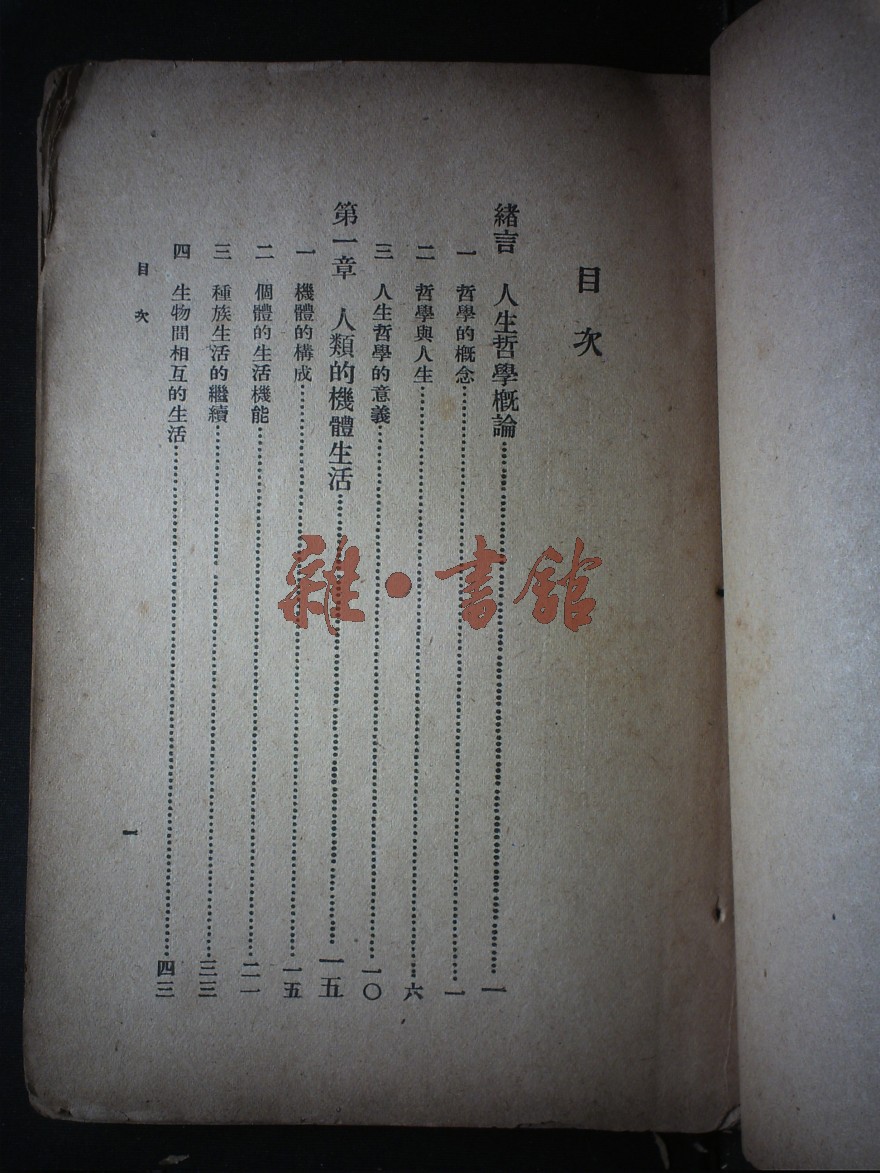 目次
緒言　人生哲學概論……一
一　哲學的概念……一
二　哲學與人生……六
三　人生哲學的意義……一〇
第一章　人類的機體生活……一五
一　機體的構成……一五
二　個體的生活機能……二一
三　種族生活的繼續……三三
四　生物間相互的生活……四三
目次
一
雜·書館